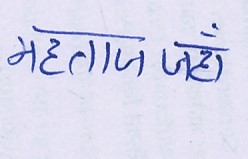 महताज जहाँ